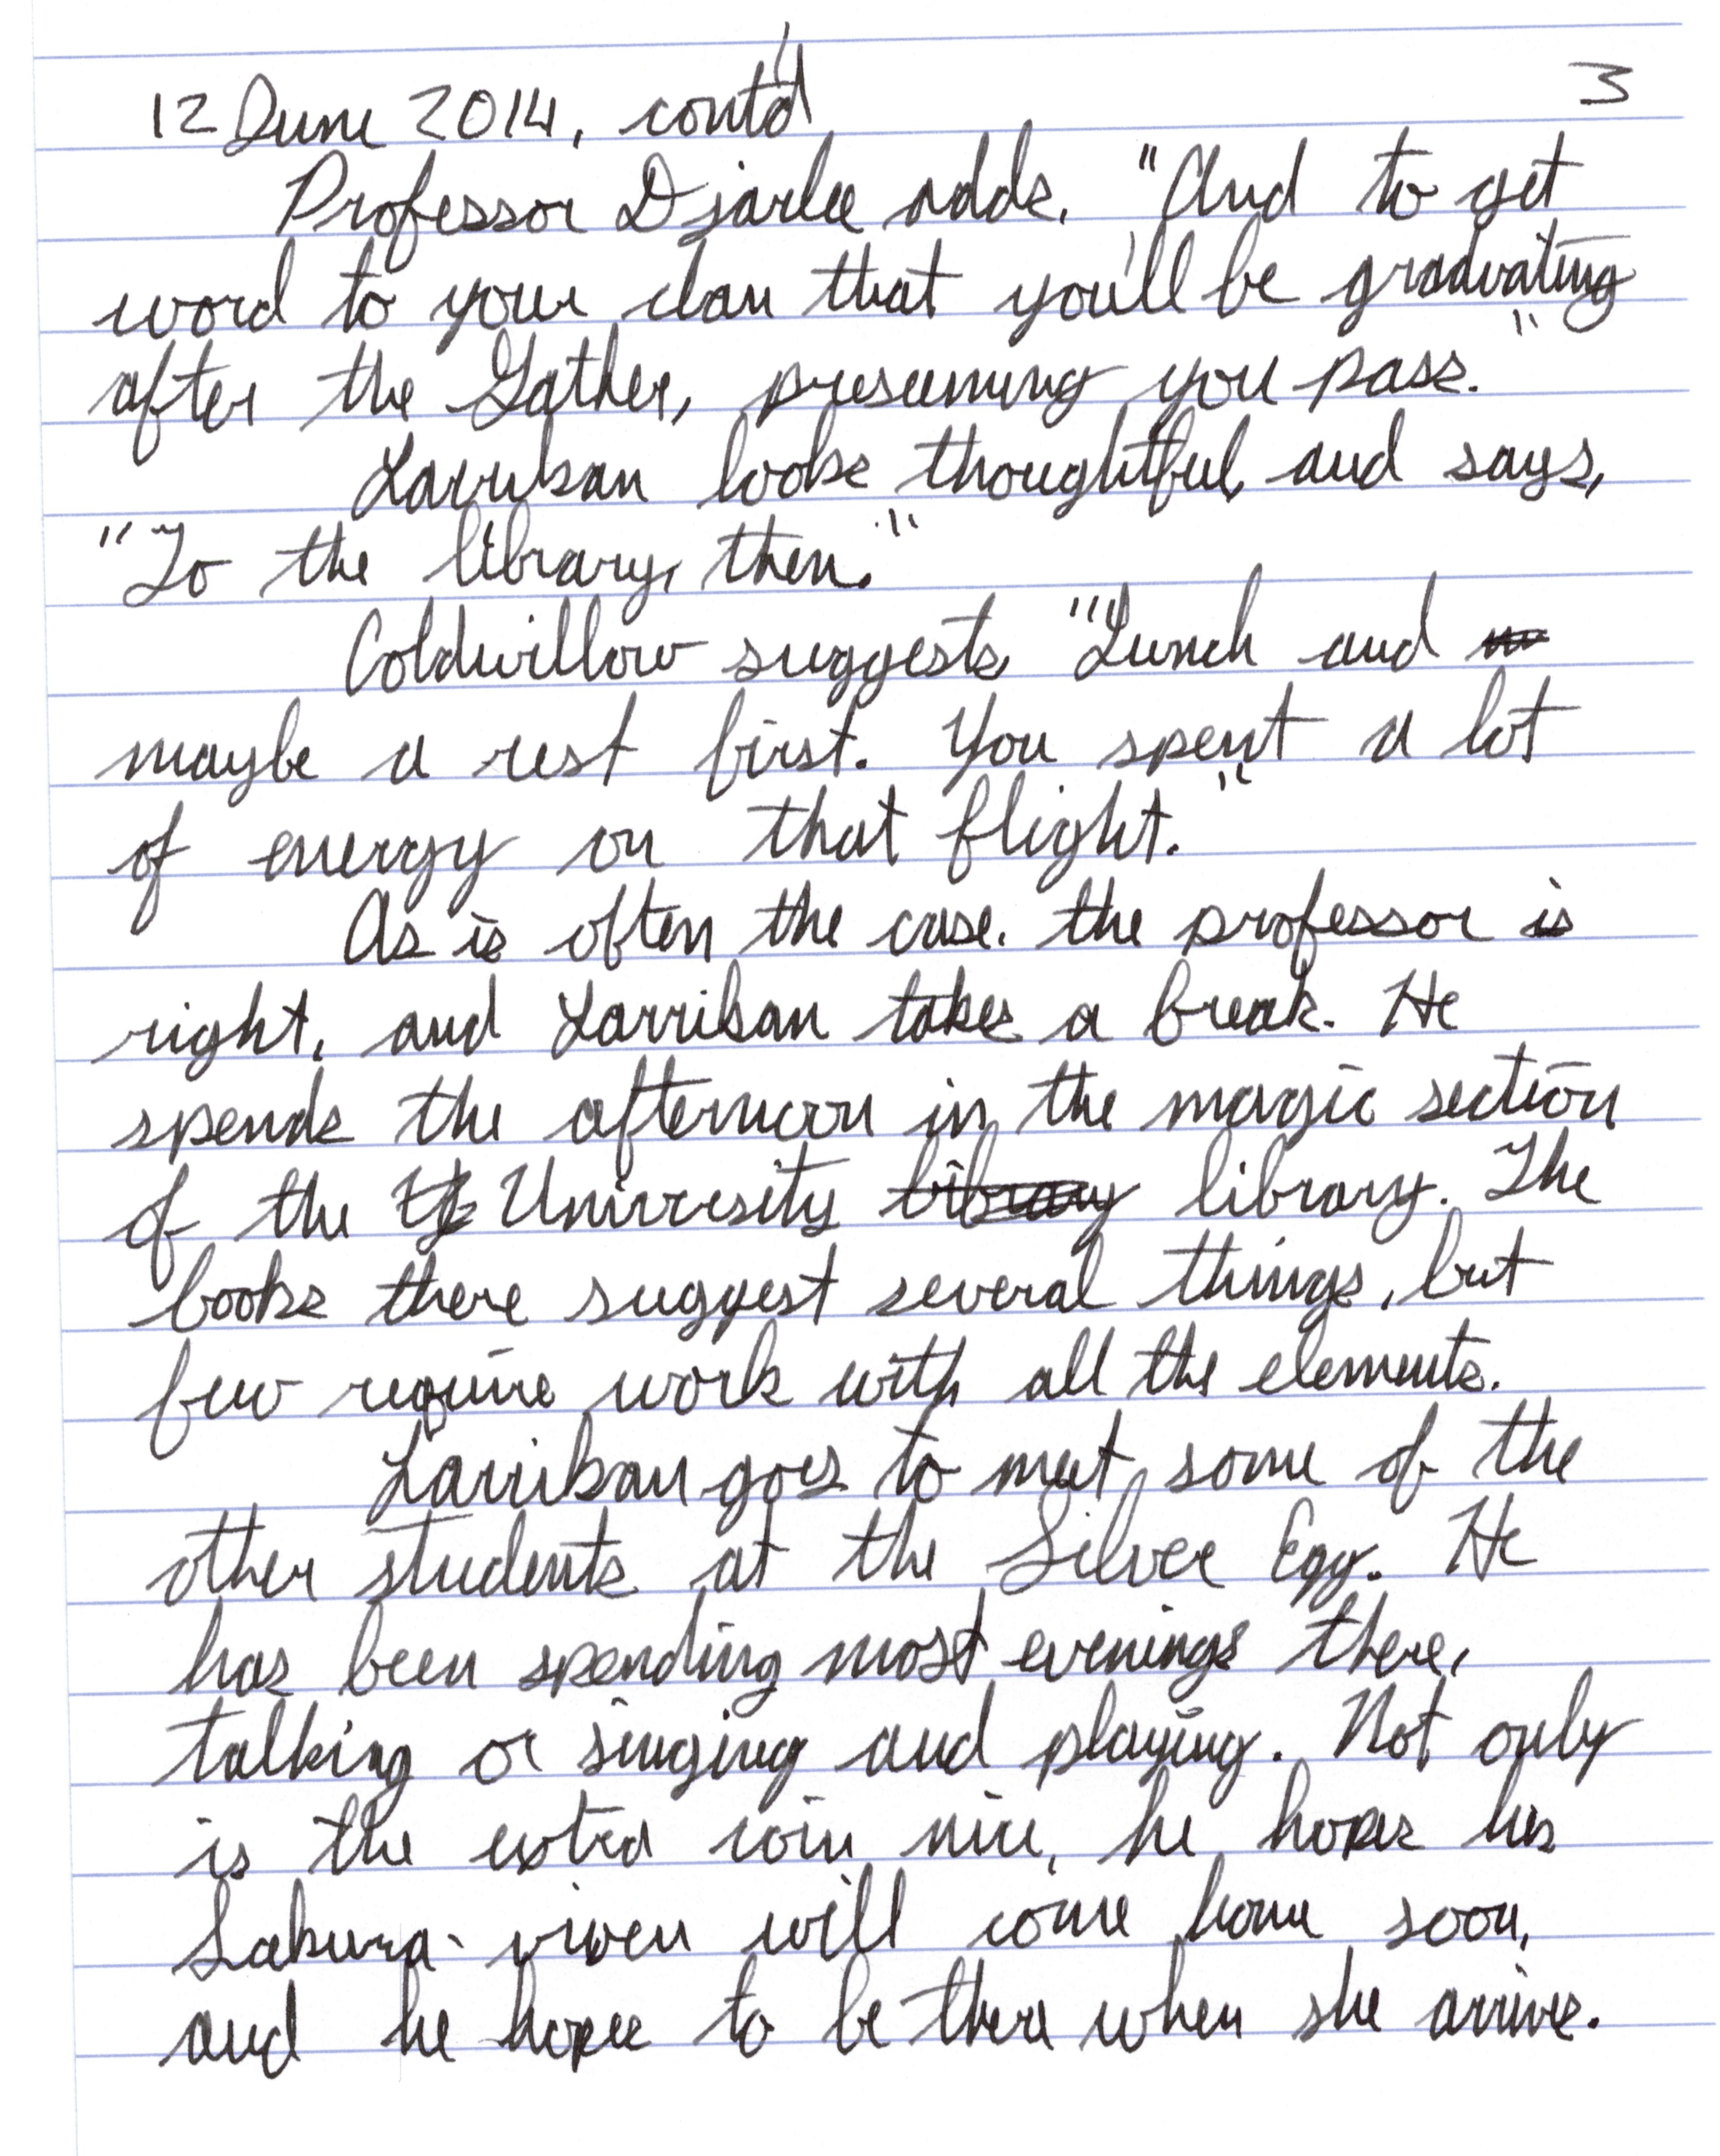 12 June 2014, cont'd 3
Professor Djarlee adds, "And to get
word to your clan that you'll be graduating
after the Gather, presuming you pass."
Larrikan looks thoughtful, and says,
"To the library, then."
Coldwillow suggests, "Lunch and
maybe a rest first. You spent a lot
of energy on that flight."
As is often the case, the professor is
right, and Larrikan takes a break. He
spends the afternoon in the magic section
of the University library. The
books there suggest several things, but
few require work with all the elements.
Larrikan goes to meet some of the
other students at the Silver Egg. He
has been spending most evenings there,
talking or singing and playing. Not only
is the extra coin nice, he hopes his
Sakura-viven will come home soon,
and he hopes to be there when she arrives.